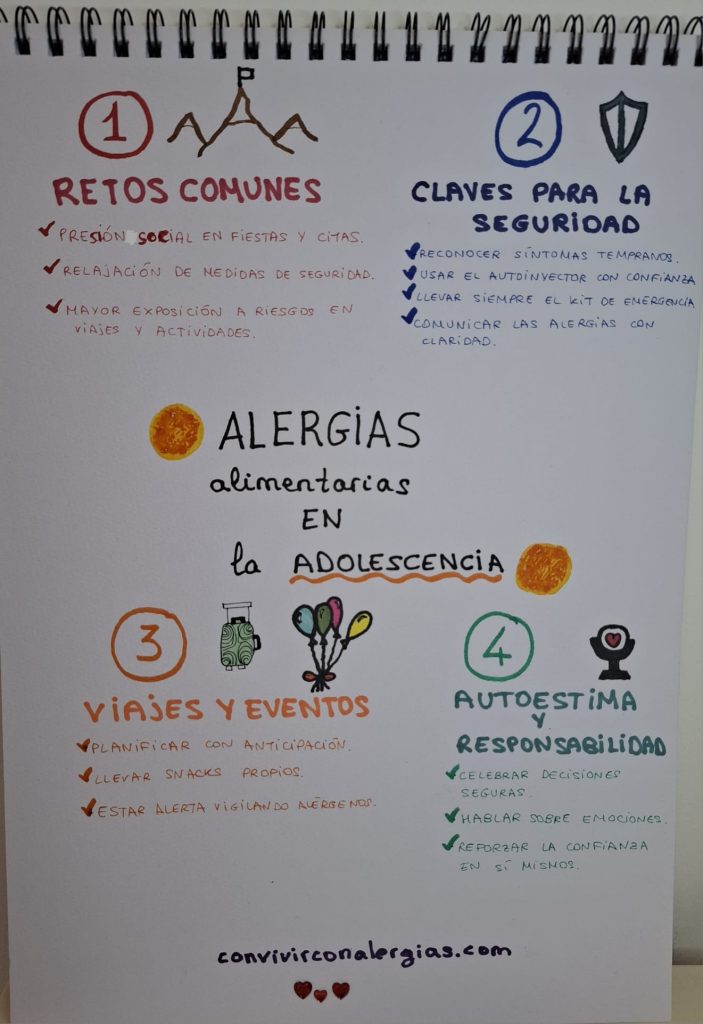 1
RETOS COMUNES
PRESIÓN SOCIAL EN FIESTAS Y CITAS.
RELAJACIÓN DE MEDIDAS DE SEGURIDAD.
MAYOR EXPOSICIÓN A RIESGOS EN
VIAJES Y ACTIVIDADES.
2
CLAVES PARA LA
SEGURIDAD
RECONOCER SÍNTOMAS TEMPRANOS.
USAR EL AUTOINYECTOR CON CONFIANZA
LLEVAR SIEMPRE EL KIT DE EMERGENCIA
COMUNICAR LAS ALERGIAS CON
CLARIDAD.
ALERGIAS
alimentarias
EN
la ADOLESCENCIA
3
VIAJES Y EVENTOS
PLANIFICAR CON ANTICIPACIÓN.
LLEVAR SNACKS PROPIOS.
ESTAR ALERTA VIGILANDO ALÉRGENOS.
4
AUTOESTIMA
Y
RESPONSABILIDAD
CELEBRAR DECISIONES
SEGURAS.
HABLAR SOBRE EMOCIONES.
REFORZAR LA CONFIANZA
EN SÍ MISMOS.
convivirconalergias.com